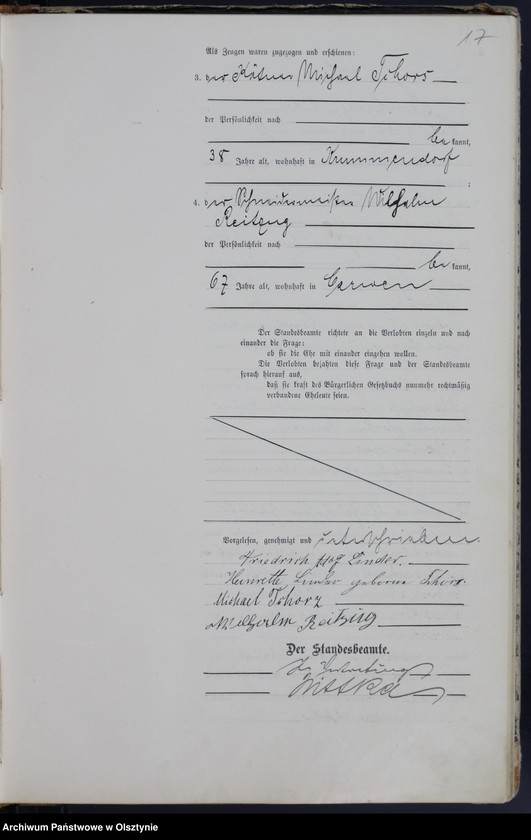 17
Als Zeugen waren zugezogen und erschienen:
3. der Kätner Michael Tschors
der Persönlichkeit nach
be kannt,
38 Jahre alt, wohnhaft in Krummendorf
;
4. der Schneidermeister Wilhelm
Reitzug
der Persönlichkeit nach
be kannt,
67 Jahre alt, wohnhaft in Carwen
Der Standesbeamte richtete an die Verlobten einzeln und nach
einander die Frage:
ob sie die Ehe mit einander eingehen wollen.
Die Verlobten bejahten diese Frage und der Standesbeamte
sprach hierauf aus,
daß sie kraft des Bürgerlichen Gesetzbuchs nunmehr rechtmäßig
verbundene Eheleute seien.
Vorgelesen, genehmigt und unterschrieben.
Friedrich Linder.
Henriette Linder geborene
Michael Tschorz
Wilhelm Reitzug
Der Standesbeamte.
In Vertretung
Wittka
Archiwum Państwowe w Olsztynie